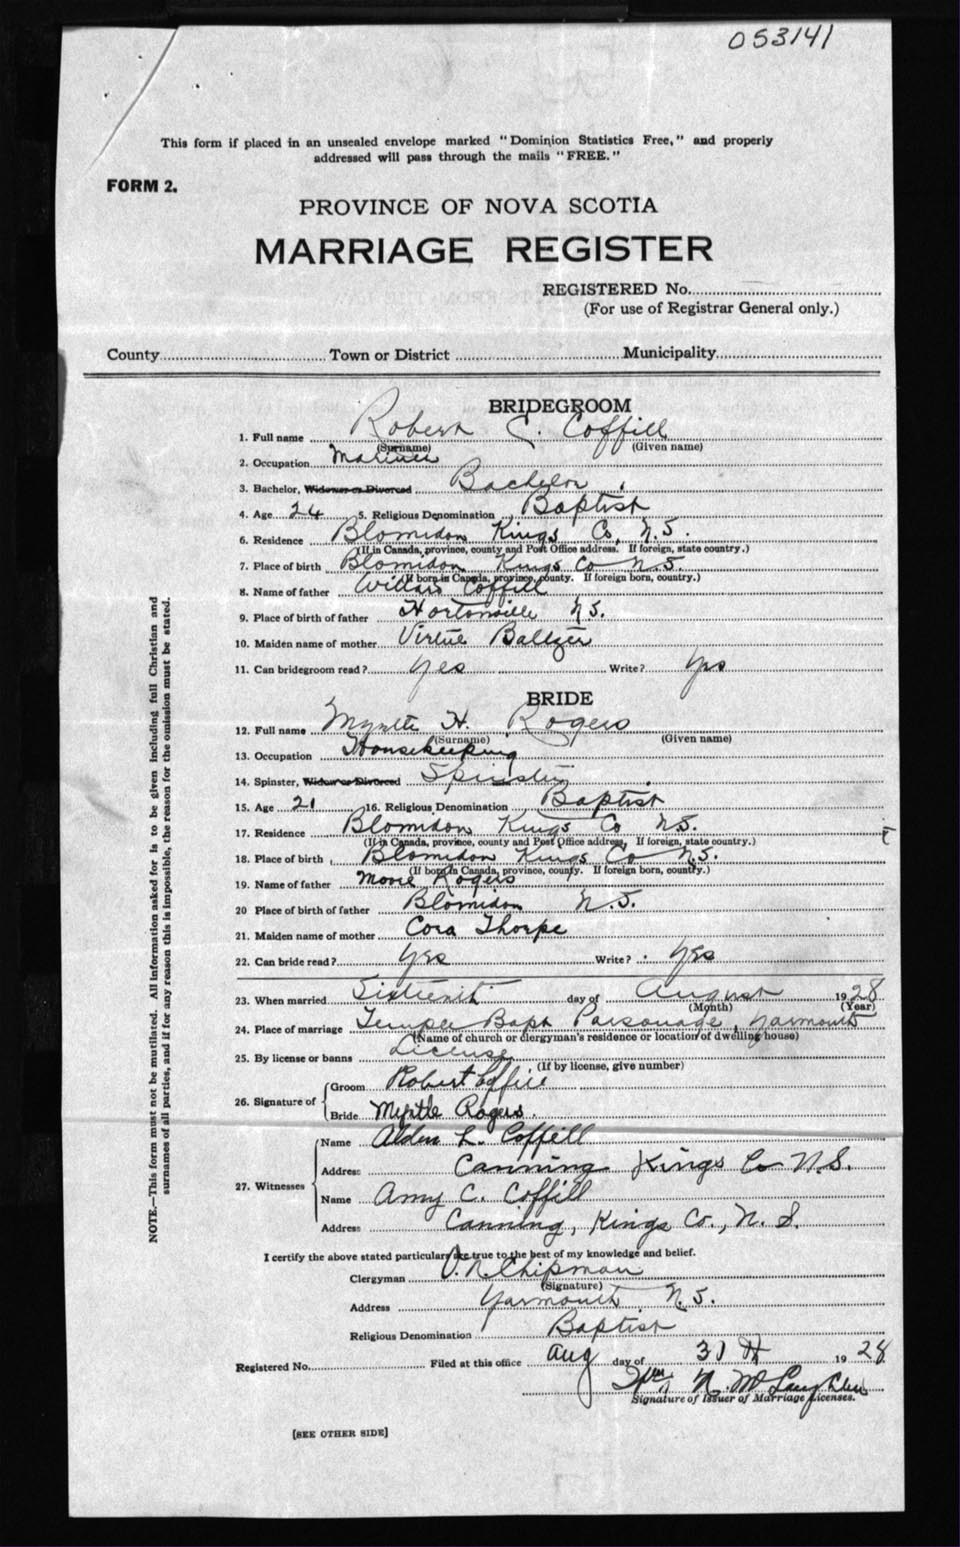 053141
This form if placed in an unsealed envelope marked "Dominion Statistics Free," and properly
addressed will pass through the mails "FREE."
FORM 2.
PROVINCE OF NOVA SCOTIA
MARRIAGE REGISTER
REGISTERED No.
(For use of Registrar General only.)
County Town or District Municipality
BRIDEGROOM
1. Full name Robert C. Coffill
(Surname) (Given name)
2. Occupation Mariner
3. Bachelor, Widower or Divorced Bachelor
4. Age 24 5. Religious Denomination Baptist
6. Residence Blomidon Kings Co, N.S.
(If in Canada, province, county and Post Office address. If foreign, state country.)
7. Place of birth Blomidon Kings Co N.S.
(If born in Canada, province, county. If foreign born, country.)
8. Name of father Coffill
9. Place of birth of father Hortonville N.S.
10. Maiden name of mother Virtue Baltzer
11. Can bridegroom read? Yes Write? Yes
BRIDE
12. Full name Myrtle H. Rogers
(Surname) (Given name)
13. Occupation Housekeeping
14. Spinster, Widow or Divorced Spinster
15. Age 21 16. Religious Denomination Baptist
17. Residence Blomidon Kings Co N.S.
(If in Canada, province, county and Post Office address, If foreign, state country.)
18. Place of birth Blomidon Kings Co N.S.
(If born in Canada, province, county. If foreign born, country.)
19. Name of father Rogers
20 Place of birth of father Blomidon N.S.
21. Maiden name of mother Cora Thorpe
22. Can bride read? Yes Write? Yes
23. When married Sixteenth day of August 1928
(Month) (Year)
24. Place of marriage Temple Bapt Parsonage, Yarmouth
(Name of church or clergyman's residence or location of dwelling house)
25. By license or banns License
(If by license, give number)
26. Signature of
Groom Robert Coffill
Bride Myrtle Rogers.
27. Witnesses
Name Alden L. Coffill
Address Canning Kings Co N.S.
Name Amy C. Coffill
Address Canning, Kings Co., N.S.
I certify the above stated particulars are true to the best of my knowledge and belief.
Clergyman Chipman
(Signature)
Address Yarmouth N.S.
Religious Denomination Baptist
Registered No. Filed at this office Aug day of 31st 1928
Wm N. McLaughlin
Signature of Issuer of Marriage Licenses.
[SEE OTHER SIDE]
NOTE.—This form must not be mutilated. All information asked for is to be given including full Christian and
surnames of all parties, and if for any reason this is impossible, the reason for the omission must be stated.